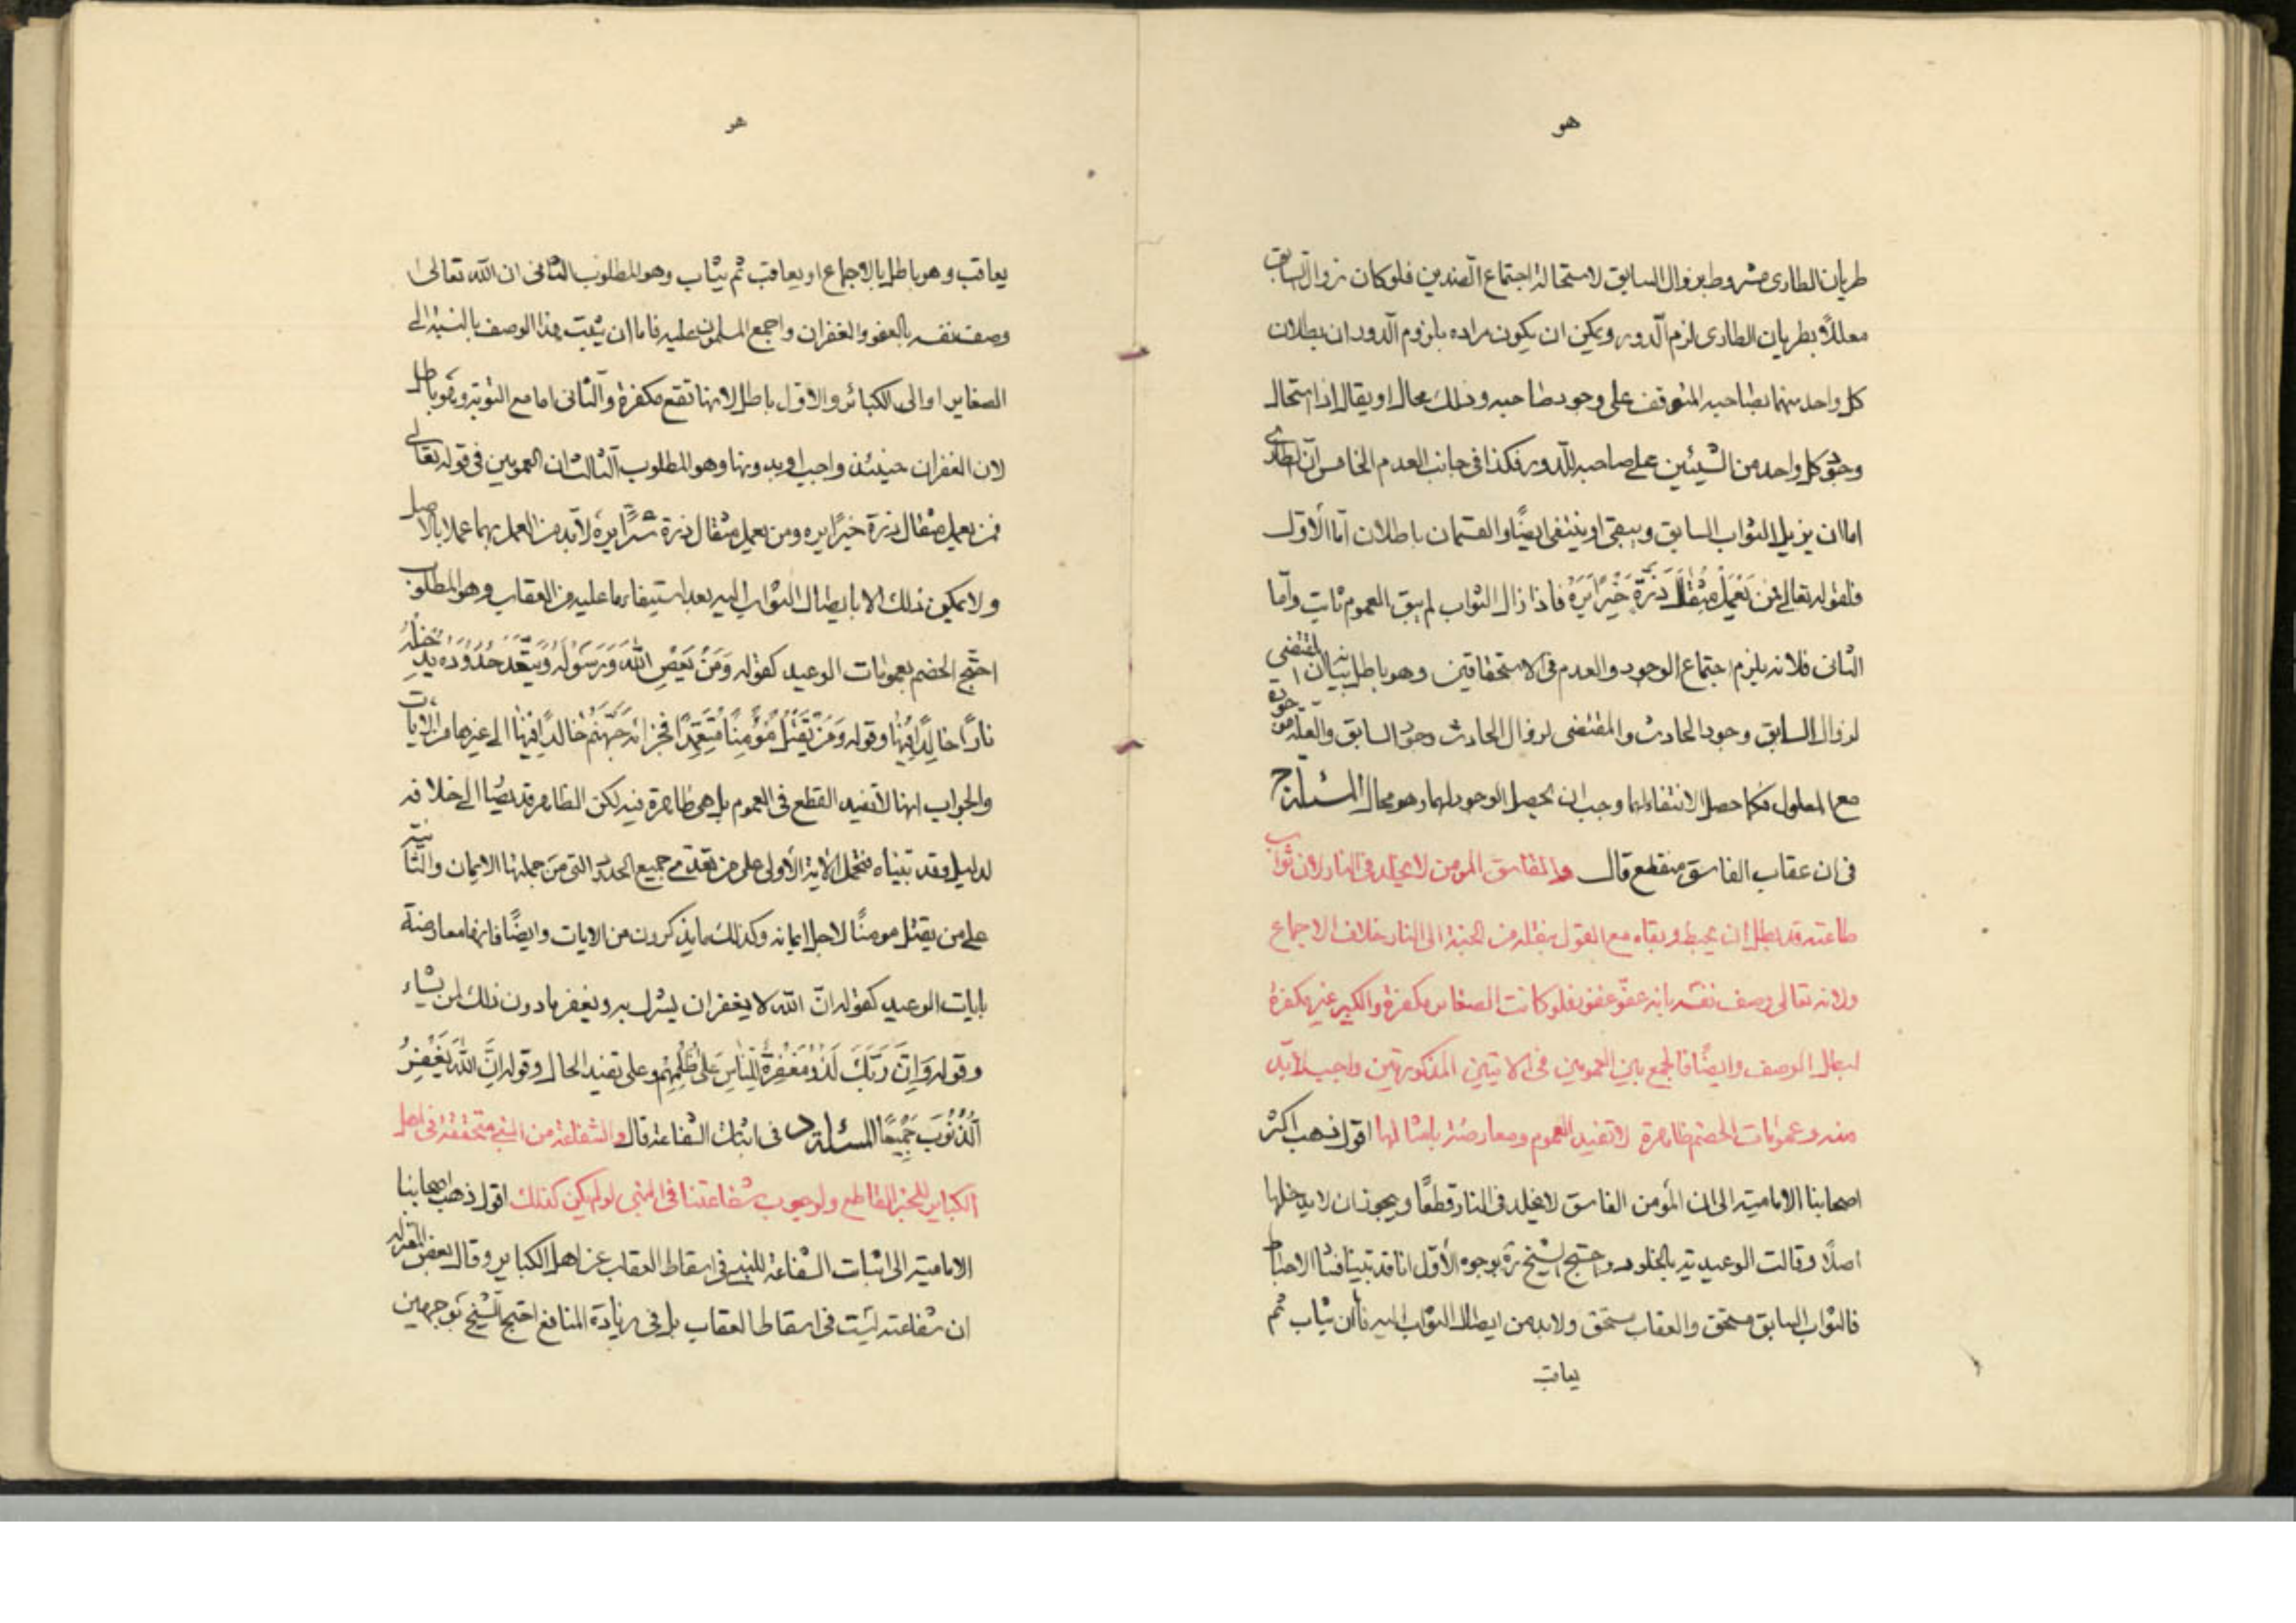 هو
طريان الطارى مشروط بزوال السابق لاستحالة اجتماع الضدين فلو كان زوال السابق
معللًا بطريان الطارى لزم الدور ويمكن ان يكون مراده بلزوم الدور ان بطلان
كل واحد منهما بصاحبه المتوقف على وجود صاحبه وذلك محال او يقال اذا استحال
كل واحد من الشيئين على صاحبه للدور فكذا فى جانب العدم الخامس ان الطارى
اما ان يزيل الثواب السابق ويبقى او ينتفى ايضًا والقسمان باطلان اما الأول
فلقوله تعالى فمن يَعْمَلْ مِثْقٰالَ ذَرَّةٍ خَيْرًا يَرَهُ فاذا زال الثواب لم يبق العموم ثابت وأما
الثانى فلانه يلزم اجتماع الوجود والعدم فى الاستحقاقين وهو باطل بيانه ان المقتضى
لزوال السابق وجود الحادث والمقتضى لزوال الحادث وجود السابق والعلة موجودة
مع المعلول فكما حصل الانتفاء لهما وجب ان يحصل الوجود لهما وهو محال المسئلة ج
فى ان عقاب الفاسق منقطع قال والفاسق المومن لا يخلد فى النار لان ثواب
طاعته قد بطل ان يحبط وبقاه مع القول بنقله من الجنة الى النار خلاف الاجماع
ولانه تعالى وصف نفسه بانه عفو غفور فلو كانت الصغاير مكفرة والكبير غير مكفرة
لبطل الوصف وايضًا فالجمع بين العمومين فى الآيتين المذكورتين واجب لا بد
منه وعمومات الخصم ظاهرة لا تفيد العموم ومعارضة بامثالها اقول ذهب اكثر
اصحابنا الامامية الى ان المؤمن الفاسق لا يخلد فى النار قطعًا ويجوز ان لا يدخلها
اصلًا وقالت الوعيدية بالخلود واحتج الشيخ ره بوجوه الأول انا قد بينا فساد الاحباط
فالثواب السابق مستحق والعقاب مستحق ولابد من ايصال الثواب اليه فاما ان يثاب ثم
يعاقب
هو
يعاقب وهو باطل بالاجماع او يعاقب ثم يثاب وهو المطلوب الثانى ان الله تعالى
وصف نفسه بالعفو والغفران واجمع المسلمون عليه فاما ان يثبت هذا الوصف بالنسبة الى
الصغاير او الى الكبائر والاول باطل لانها تقع مكفرة والثانى اما مع التوبة وهو باطل
لان الغفران حينئذ واجب او بدونها وهو المطلوب الثالث ان العمومين فى قوله تعالى
فمن يعمل مثقال ذرة خيرًا يره ومن يعمل مثقال ذرة شرًا يره لا بد من العمل بهما عملا بالاصل
ولا يمكن ذلك الا بايصال الثواب اليه بعد استيفاء ما عليه من العقاب وهو المطلوب
احتج الخصم بعمومات الوعيد كقوله وَمَنْ يَعْصِ اللهَ وَرَسُولَهُ وَيَتَعَدَّ حُدُودَهُ يُدْخِلْهُ
نٰارًا خٰالِدًا فِيهٰا وقوله وَمَنْ يَقْتُلْ مُؤْمِنًا مُتَعَمِّدًا فجزائه جَهَنَّمُ خٰالِدًا فِيهٰا الى غيرها من الآيات
والجواب انها لا تفيد القطع فى العموم بل هى ظاهرة فيه لكن الظاهر قد يصار الى خلافه
لدليل وقد بيناه فتحمل الآية الأولى على من تعدى جميع الحدود التى من جملتها الايمان والثانية
على من يقتل مومنًا لاجل ايمانه وكذلك ما يذكرون من الايات وايضًا فانها معارضة
بايات الوعيد كقوله ان الله لا يغفر ان يشرك به ويغفر ما دون ذلك لمن يشاء
وقوله وَاِنَّ رَبَّكَ لَذُو مَغْفِرَةٍ لِلنّٰاسِ عَلىٰ ظُلْمِهِمْ وعلى تفيد الحال وقوله اِنَّ اللهَ يَغْفِرُ
الذُّنُوبَ جَمِيعًا المسئلة د فى اثبات الشفاعة قال والشفاعة من النبى متحققة فى اهل
الكباير للخبر القاطع ولوجوب شفاعتنا فى النبى لو لم يكن كذلك اقول ذهب اصحابنا
الامامية الى اثبات الشفاعة للنبى فى اسقاط العقاب عن اهل الكباير وقال بعض المعتزلة
ان شفاعته ليست فى اسقاط العقاب بل فى زيادة المنافع احتج الشيخ بوجهين